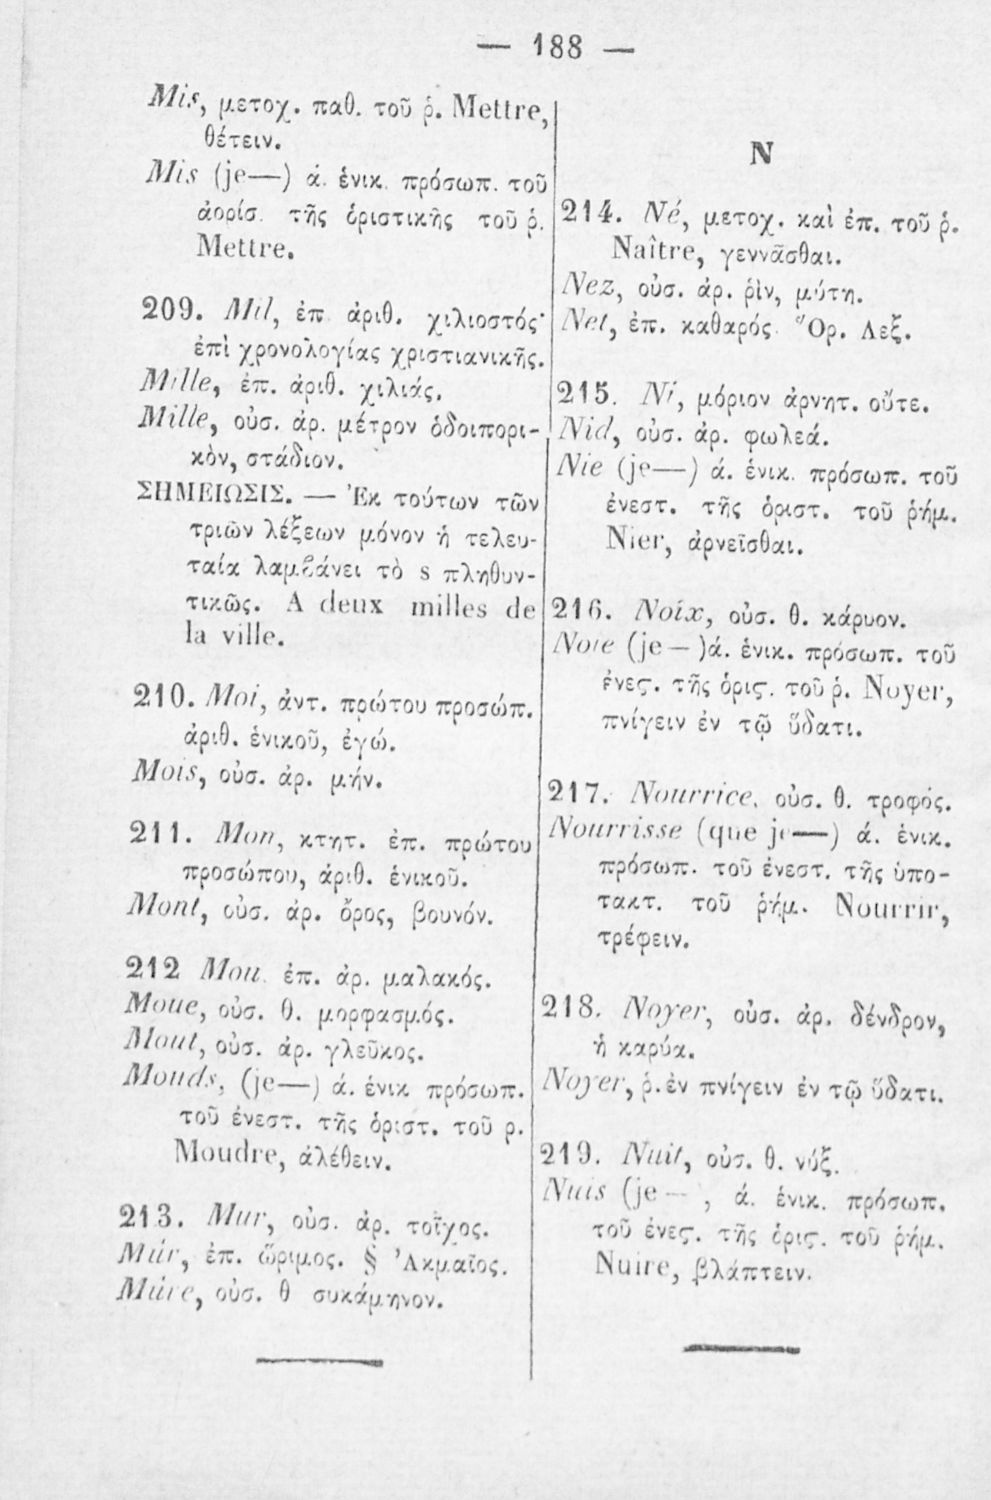 — 188 —
Mis, μετοχ. παθ. τοῦ ῥ. Mettre,
θέτειν.
Mis (je—) ά. ἑνικ. πρόσωπ. τοῦ
ἀορίσ. τῆς ὁριστικῆς τοῦ ῥ.
Mettre.
209. Mil, ἐπ. ἀριθ. χιλιοστός·
ἐπὶ χρονολογίας χριστιανικῆς.
Mille, ἐπ. ἀριθ. χιλιάς.
Mille, οὐσ. ἀρ. μέτρον ὁδοιπορι-
κὸν, στάδιον.
ΣΗΜΕΙΩΣΙΣ. — Ἐκ τούτων τῶν
τριῶν λέξεων μόνον ἡ τελευ-
ταία λαμβάνει τὸ s πληθυν-
τικῶς. A deux milles de
la ville.
210. Moi, ἀντ. πρώτου προσώπ.
ἀριθ. ἑνικοῦ, ἐγώ.
Mois, οὐσ. ἀρ. μήν.
211. Mon, κτητ. ἐπ. πρώτου
προσώπου, ἀριθ. ἑνικοῦ.
Mont, οὐσ. ἀρ. ὄρος, βουνόν.
212 Mou. ἐπ. ἀρ. μαλακός.
Moue, οὐσ. θ. μορφασμός.
Mout, οὐσ. ἀρ. γλεῦκος.
Mouds, (je—) ά. ἑνικ πρόσωπ.
τοῦ ἐνεστ. τῆς ὁριστ. τοῦ ρ.
Moudre, ἀλέθειν.
213. Mur, οὐσ. ἀρ. τοῖχος.
Mûr, ἐπ. ὥριμος. § Ἀκμαῖος.
Mûre, οὐσ. θ συκάμηνον.
N
214. Né, μετοχ. καὶ ἐπ. τοῦ ῥ.
Naître, γεννᾶσθαι.
Nez, οὐσ. ἀρ. ῥὶν, μύτη.
Net, ἐπ. καθαρός. Ὅρ. Λεξ.
215. Ni, μόριον ἀρνητ. οὔτε.
Nid, οὐσ. ἀρ. φωλεά.
Nie (je—) ά. ἑνικ. πρόσωπ. τοῦ
ἐνεστ. τῆς ὁριστ. τοῦ ῥήμ.
Nier, ἀρνεῖσθαι.
216. Noix, οὐσ. θ. κάρυον.
Noie (je—)ά. ἑνικ. πρόσωπ. τοῦ
ἐνεϛ. τῆς ὁριϛ. τοῦ ῥ. Noyer,
πνίγειν ἐν τῷ ὕδατι.
217. Nourrice, οὐσ. θ. τροφός.
Nourrisse (que je—) ά. ἑνικ.
πρόσωπ. τοῦ ἐνεστ. τῆς ὑπο-
τακτ. τοῦ ῥήμ. Nourrir,
τρέφειν.
218. Noyer, οὐσ. ἀρ. δένδρον,
ἡ καρύα.
Noyer, ῥ. ἐν πνίγειν ἐν τῷ ὕδατι.
219. Nuit, οὐσ. θ. νύξ.
Nuis (je — , ά. ἑνικ. πρόσωπ.
τοῦ ἐνεϛ. τῆς ὁριϛ. τοῦ ῥήμ.
Nuire, βλάπτειν.